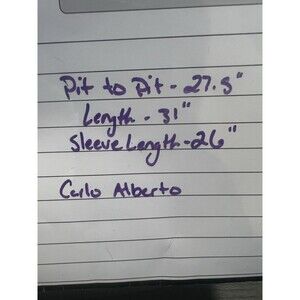 Pit to Pit - 27.5"
Length - 31"
Sleeve Length - 26"
Carlo Alberto